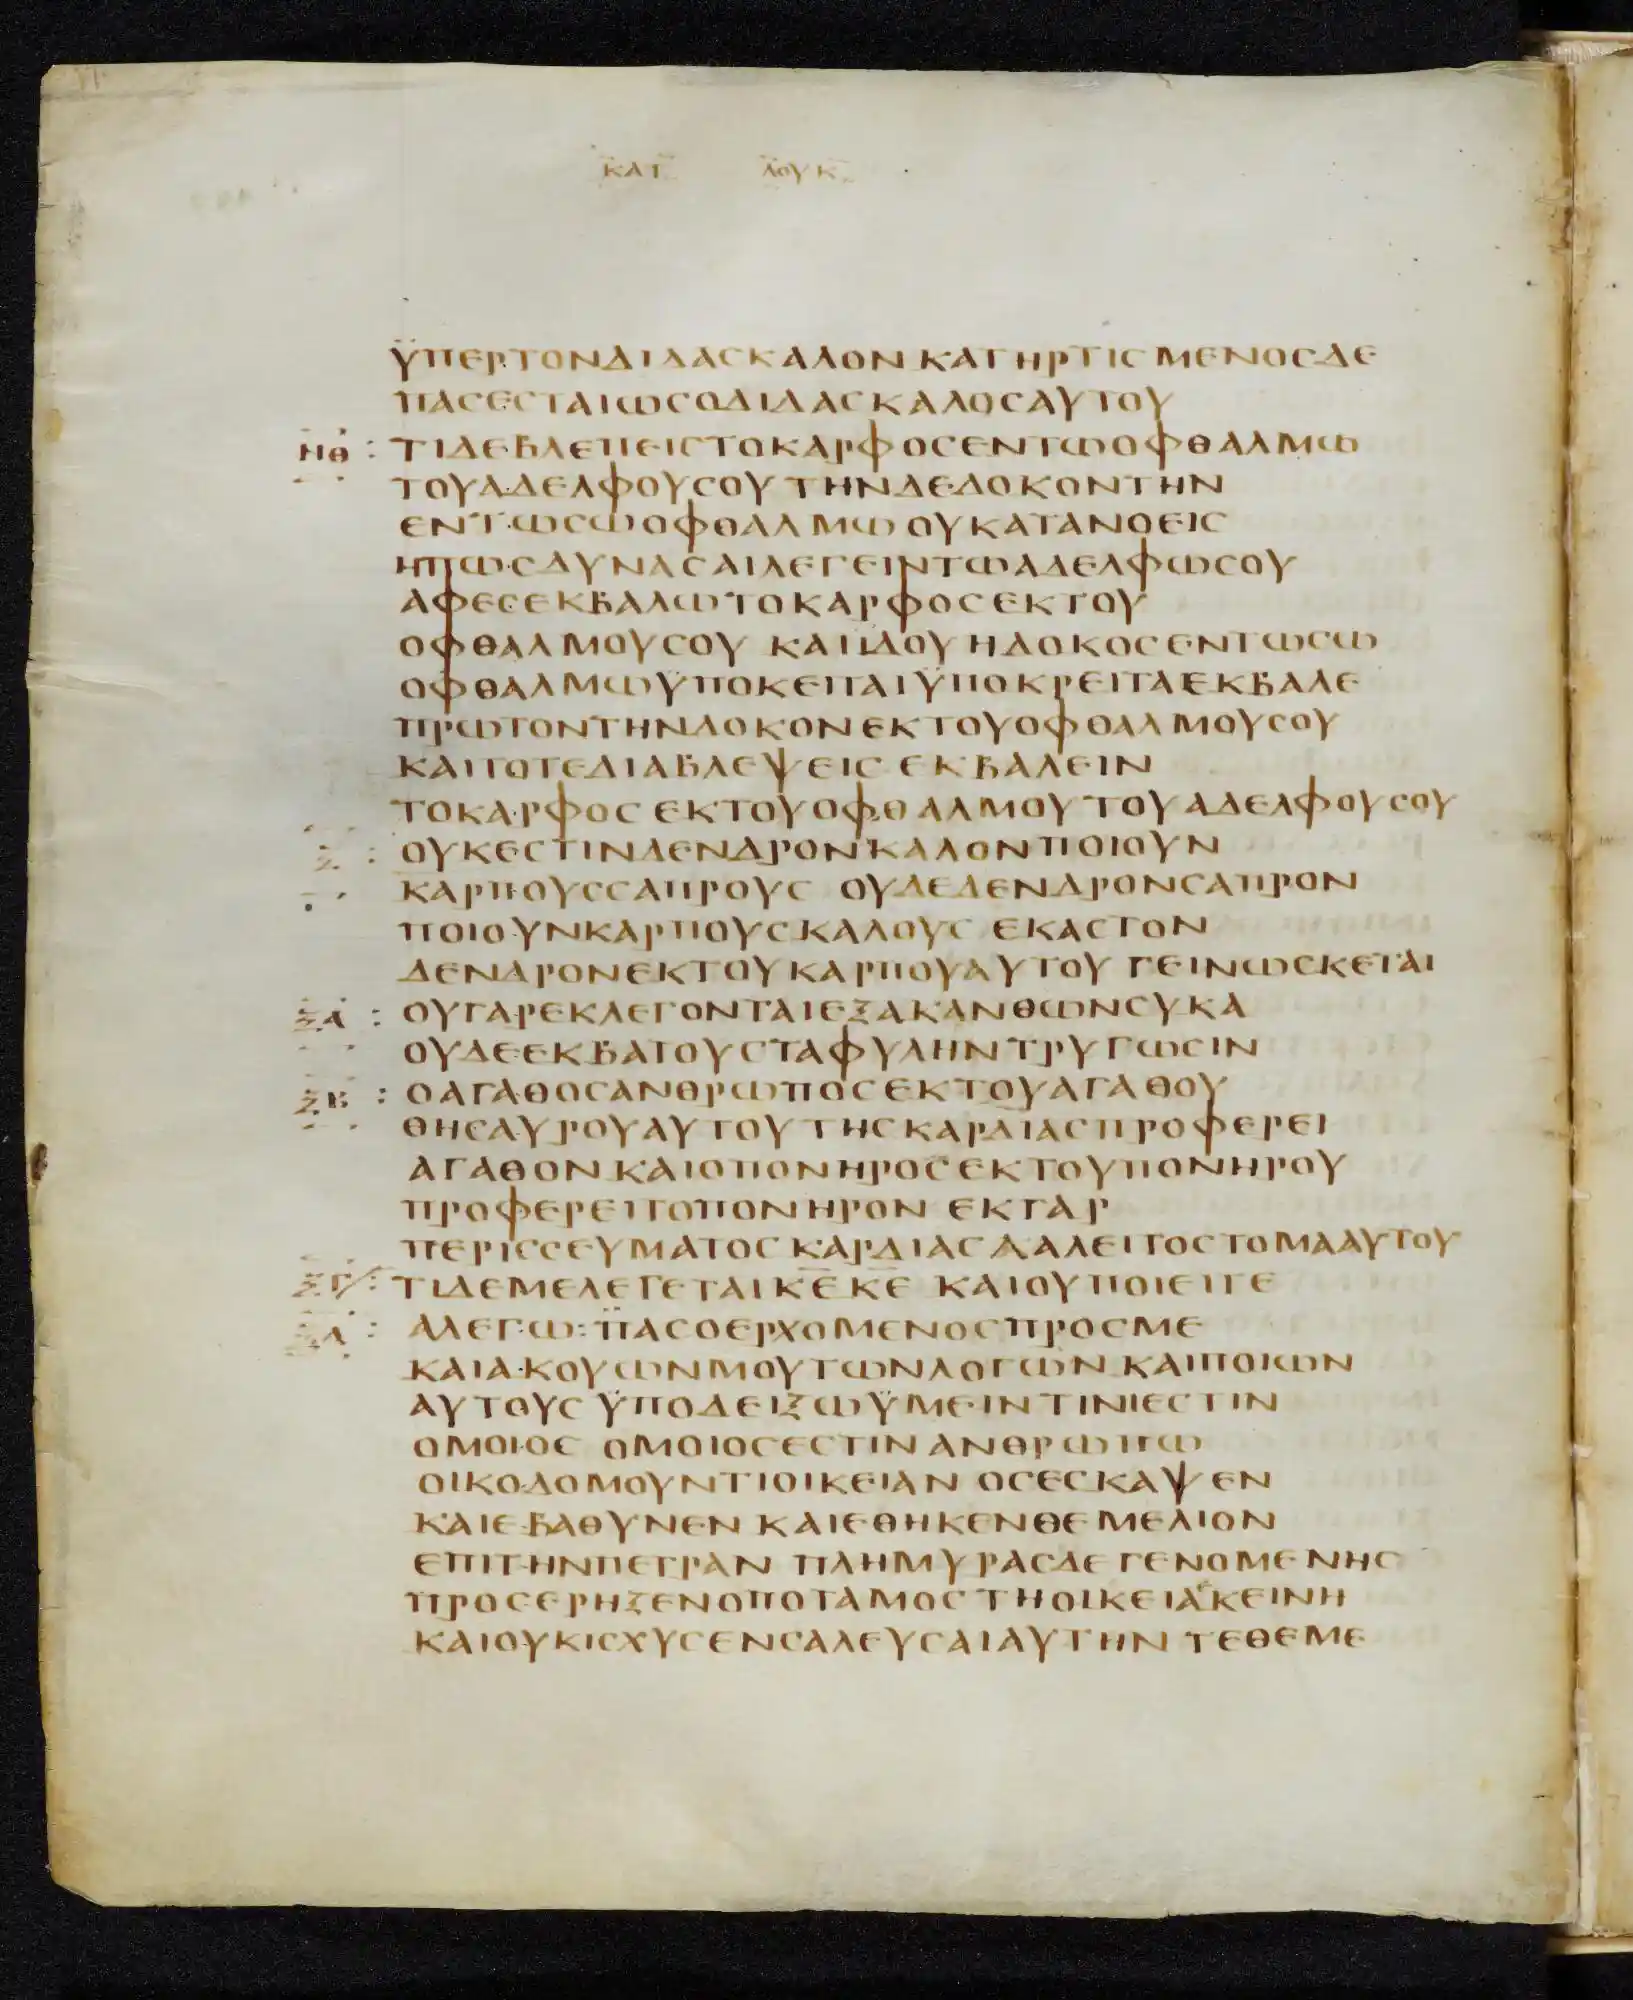 ΚΑΤ ΛΟΥΚ
ΫΠΕΡΤΟΝΔΙΔΑΣΚΑΛΟΝ ΚΑΤΗΡΤΙϹΜΕΝΟϹΔΕ
ΠΑϹΕϹΤΑΙΩϹΟΔΙΔΑϹΚΑΛΟϹΑΥΤΟΥ
ΝΘ : ΤΙΔΕΒΛΕΠΕΙϹΤΟΚΑΡΦΟϹΕΝΤΩΟΦΘΑΛΜΩ
ΤΟΥΑΔΕΛΦΟΥϹΟΥ ΤΗΝΔΕΔΟΚΟΝΤΗΝ
ΕΝΤΩϹΩΟΦΘΑΛΜΩ ΟΥΚΑΤΑΝΟΕΙϹ
ΗΠΩϹΔΥΝΑϹΑΙΛΕΓΕΙΝΤΩΑΔΕΛΦΩϹΟΥ
ΑΦΕϹΕΚΒΑΛΩΤΟΚΑΡΦΟϹΕΚΤΟΥ
ΟΦΘΑΛΜΟΥϹΟΥ ΚΑΙΙΔΟΥ ΗΔΟΚΟϹΕΝΤΩϹΩ
ΟΦΘΑΛΜΩΫΠΟΚΕΙΤΑΙΫΠΟΚΡΕΙΤΑΙΕΚΒΑΛΕ
ΠΡΩΤΟΝΤΗΝΔΟΚΟΝΕΚΤΟΥΟΦΘΑΛΜΟΥϹΟΥ
ΚΑΙΤΟΤΕΔΙΑΒΛΕΨΕΙϹ ΕΚΒΑΛΕΙΝ
ΤΟΚΑΡΦΟϹ ΕΚΤΟΥΟΦΘΑΛΜΟΥΤΟΥΑΔΕΛΦΟΥϹΟΥ
Ξ : ΟΥΚΕϹΤΙΝΔΕΝΔΡΟΝΚΑΛΟΝΠΟΙΟΥΝ
ΚΑΡΠΟΥϹϹΑΠΡΟΥϹ ΟΥΔΕΔΕΝΔΡΟΝϹΑΠΡΟΝ
ΠΟΙΟΥΝΚΑΡΠΟΥϹΚΑΛΟΥϹ ΕΚΑϹΤΟΝ
ΔΕΝΔΡΟΝΕΚΤΟΥΚΑΡΠΟΥΑΥΤΟΥ ΓΕΙΝΩϹΚΕΤΑΙ
ΞΑ : ΟΥΓΑΡΕΚΛΕΓΟΝΤΑΙΕΞΑΚΑΝΘΩΝϹΥΚΑ
ΟΥΔΕΕΚΒΑΤΟΥϹΤΑΦΥΛΗΝΤΡΥΓΩϹΙΝ
ΞΒ : ΟΑΓΑΘΟϹΑΝΘΡΩΠΟϹΕΚΤΟΥΑΓΑΘΟΥ
ΘΗϹΑΥΡΟΥΑΥΤΟΥΤΗϹΚΑΡΔΙΑϹΠΡΟΦΕΡΕΙ
ΑΓΑΘΟΝΚΑΙΟΠΟΝΗΡΟϹΕΚΤΟΥΠΟΝΗΡΟΥ
ΠΡΟΦΕΡΕΙΤΟΠΟΝΗΡΟΝ ΕΚΓΑΡ
ΠΕΡΙϹϹΕΥΜΑΤΟϹΚΑΡΔΙΑϹΛΑΛΕΙΤΟϹΤΟΜΑΑΥΤΟΥ
ΞΓ : ΤΙΔΕΜΕΛΕΓΕΤΑΙΚ̅Ε̅Κ̅Ε̅ ΚΑΙΟΥΠΟΙΕΙΤΕ
ΞΔ : ΑΛΕΓΩ:ΠΑϹΟΕΡΧΟΜΕΝΟϹΠΡΟϹΜΕ
ΚΑΙΑΚΟΥΩΝΜΟΥΤΩΝΛΟΓΩΝ ΚΑΙΠΟΙΩΝ
ΑΥΤΟΥϹ ΫΠΟΔΕΙΞΩΫΜΕΙΝΤΙΝΙΕϹΤΙΝ
ΟΜΟΙΟϹ ΟΜΟΙΟϹΕϹΤΙΝΑΝΘΡΩΠΩ
ΟΙΚΟΔΟΜΟΥΝΤΙΟΙΚΕΙΑΝ ΟϹΕϹΚΑΨΕΝ
ΚΑΙΕΒΑΘΥΝΕΝ ΚΑΙΕΘΗΚΕΝΘΕΜΕΛΙΟΝ
ΕΠΙΤΗΝΠΕΤΡΑΝ ΠΛΗΜΥΡΑϹΔΕΓΕΝΟΜΕΝΗϹ
ΠΡΟϹΕΡΗΞΕΝΟΠΟΤΑΜΟϹΤΗΟΙΚΕΙΑΕΚΕΙΝΗ
ΚΑΙΟΥΚΙϹΧΥϹΕΝϹΑΛΕΥϹΑΙΑΥΤΗΝ ΤΕΘΕΜΕ